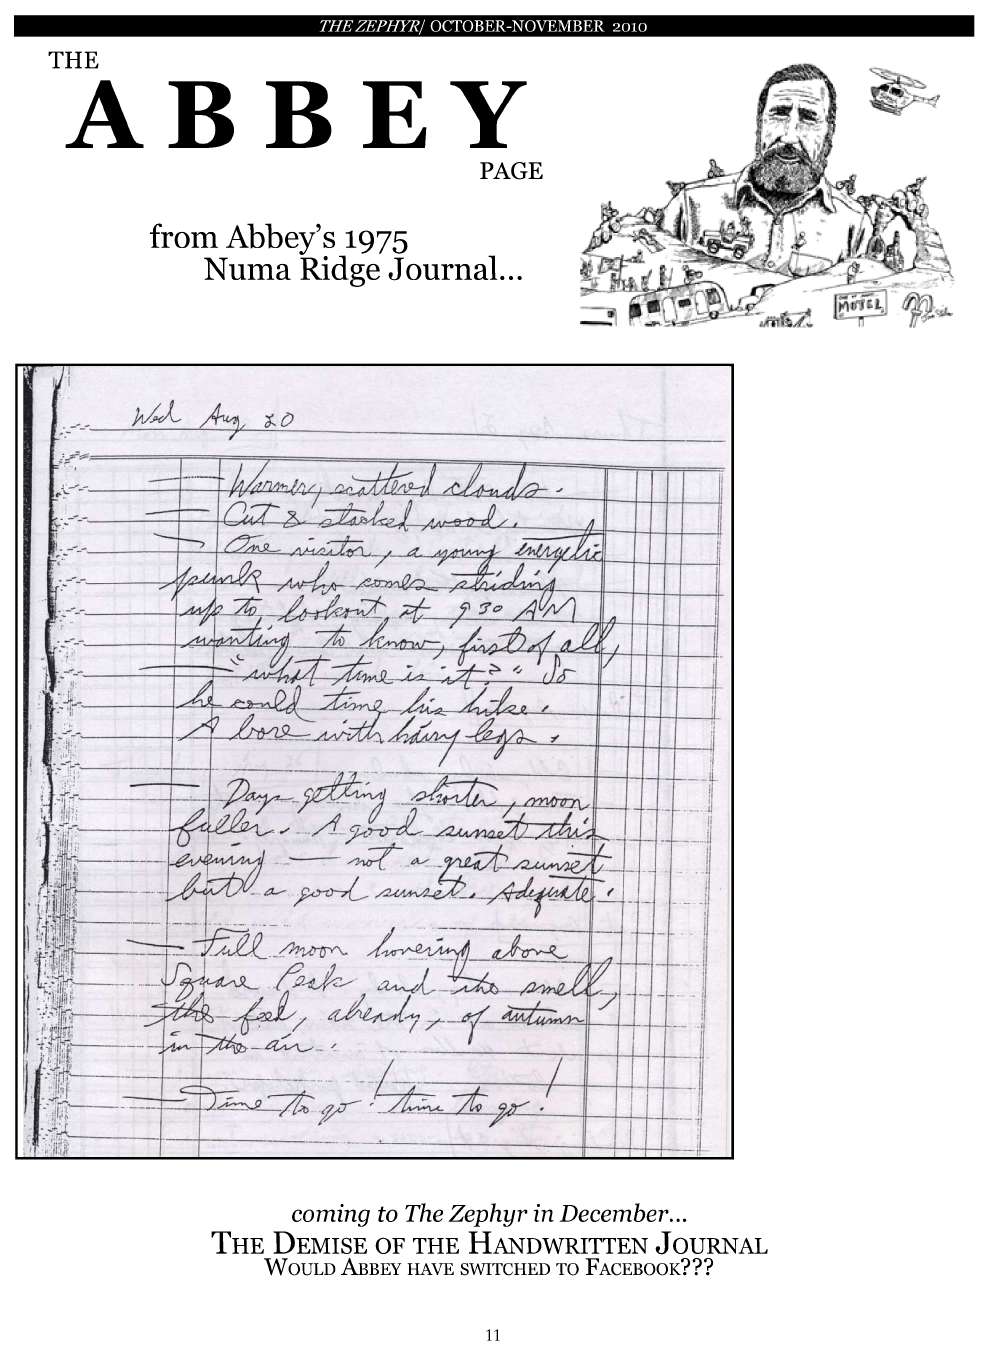 THE ZEPHYR/ OCTOBER-NOVEMBER 2010
THE
ABBEY
PAGE
from Abbey's 1975
Numa Ridge Journal...
MOTEL
Wed Aug 20
— Warmer, scattered clouds.
— Cut & stacked wood.
— One visitor, a young energetic
punk who comes striding
up to lookout at 9 30 AM
wanting to know, first of all,
— "what time is it?" So
he could time his hike.
A bore with hairy legs.
— Days getting shorter, moon
fuller. A good sunset this
evening — not a great sunset
but a good sunset. Adequate.
— Full moon hovering above
Square Peak and the smell,
the feel, already, of autumn
in the air.
— Time to go! time to go!
coming to The Zephyr in December...
THE DEMISE OF THE HANDWRITTEN JOURNAL
WOULD ABBEY HAVE SWITCHED TO FACEBOOK???
11